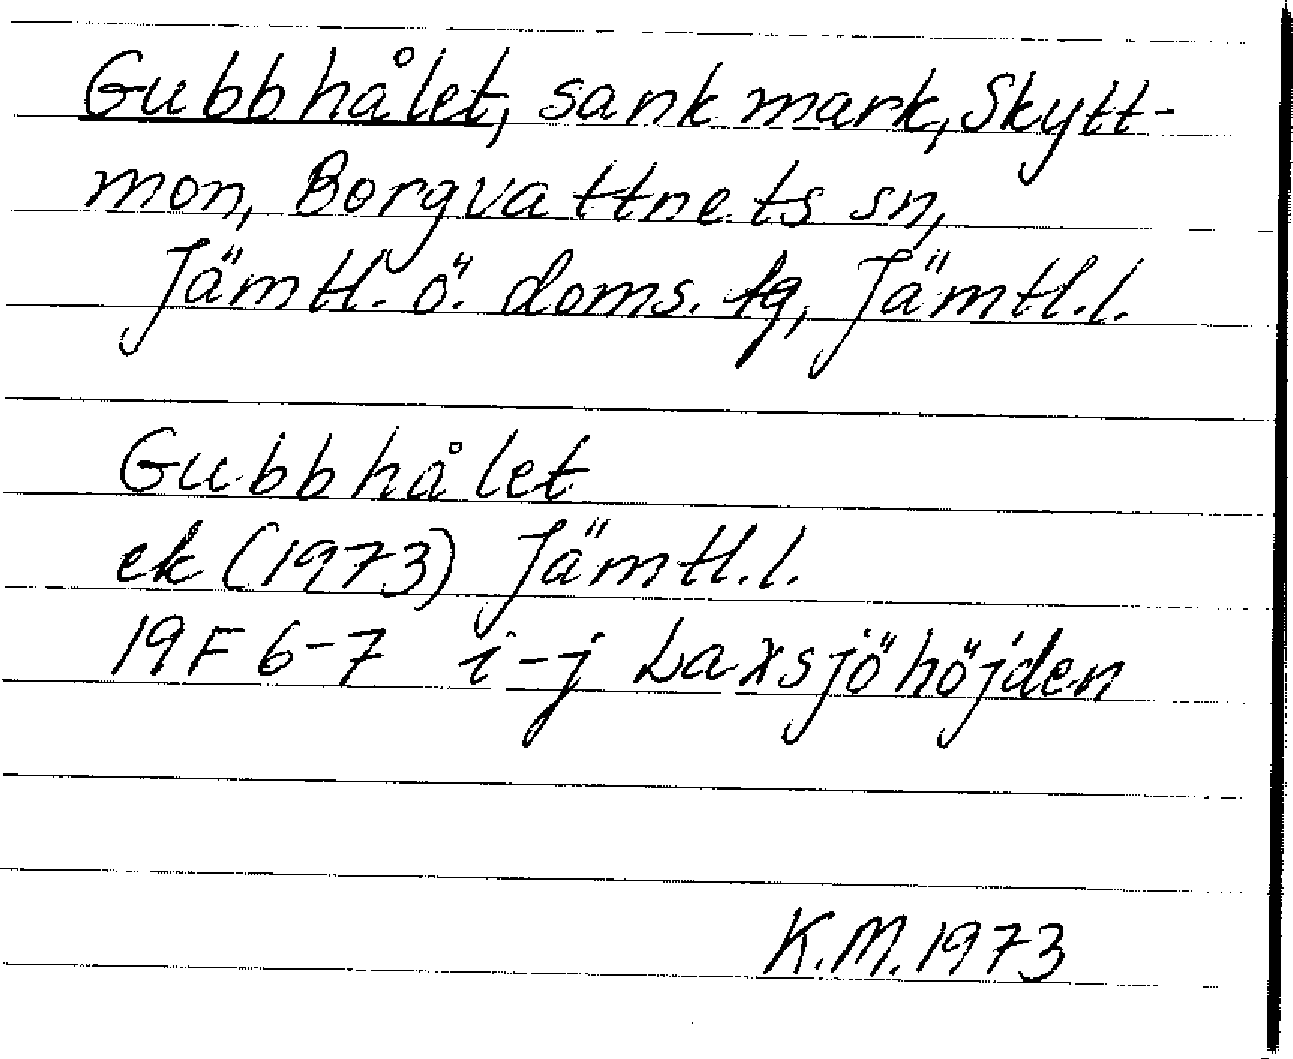 Gubbhålet, sank mark, Skytt-
mon, Borgvattnets sn,
Jämtl. ö. doms. tg, Jämtl.l.
Gubbhålet
ek (1973) Jämtl.l.
19F 6-7 i-j Laxsjöhöjden
K.M. 1973